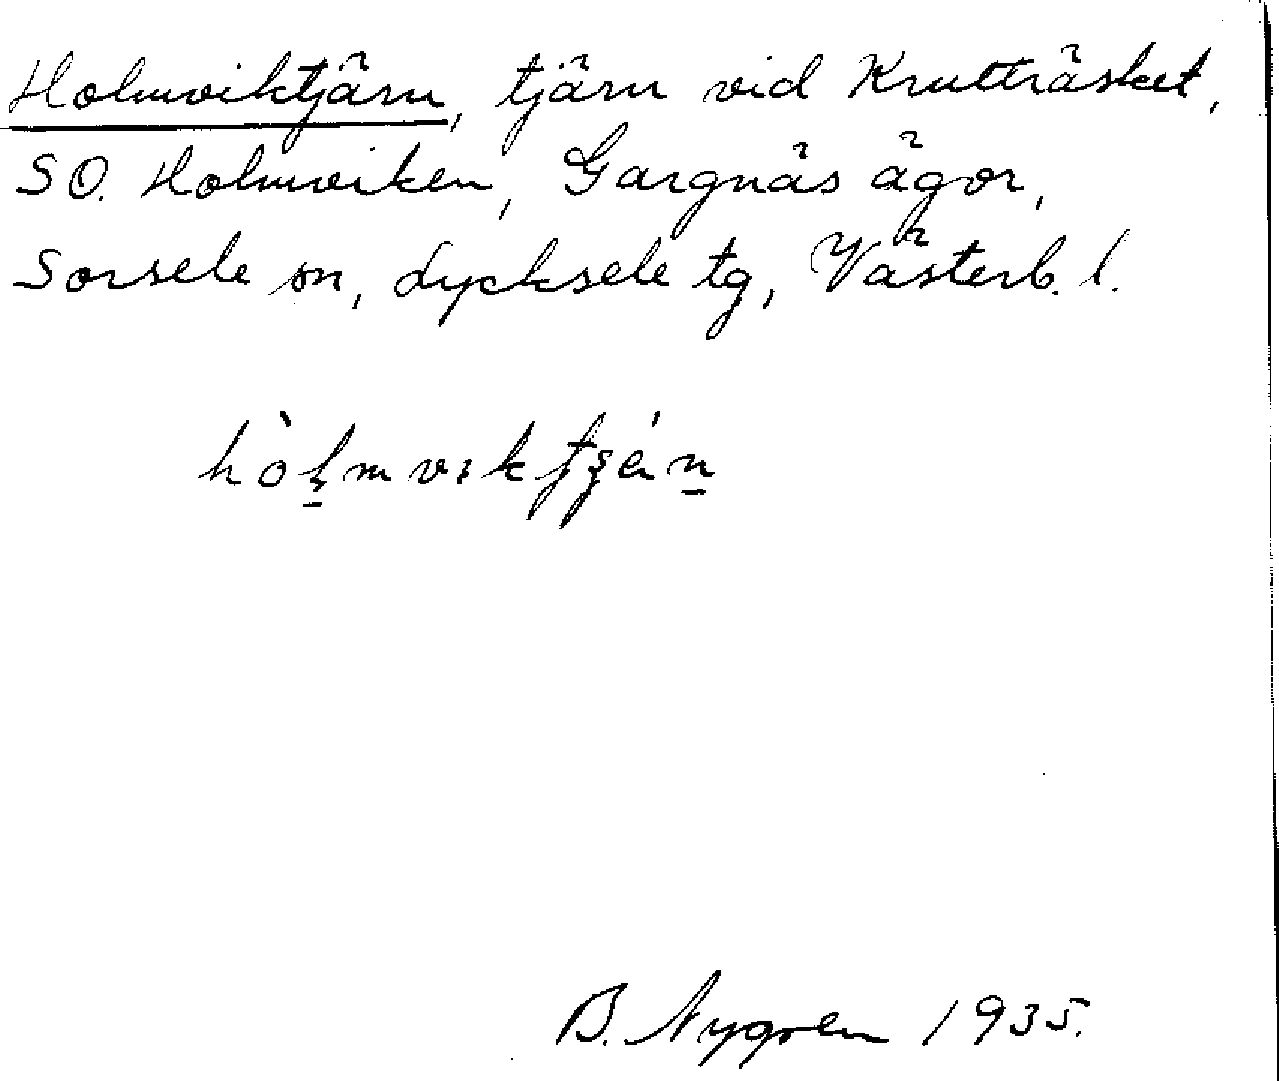 Holmviktjärn, tjärn vid Krutträsket,
SO. Holmviken, Gargnäs ägor,
Sorsele sn, Lycksele tg, Västerb. l.
B. Nygren 1935.